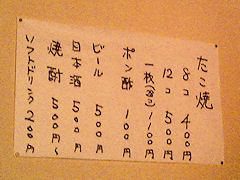 たこ焼
8コ 400円
12コ 500円
一枚(28コ) 1100円
ポン酢 100円
ビール 500円
日本酒 500円
焼酎 500円～
ソフトドリンク 200円